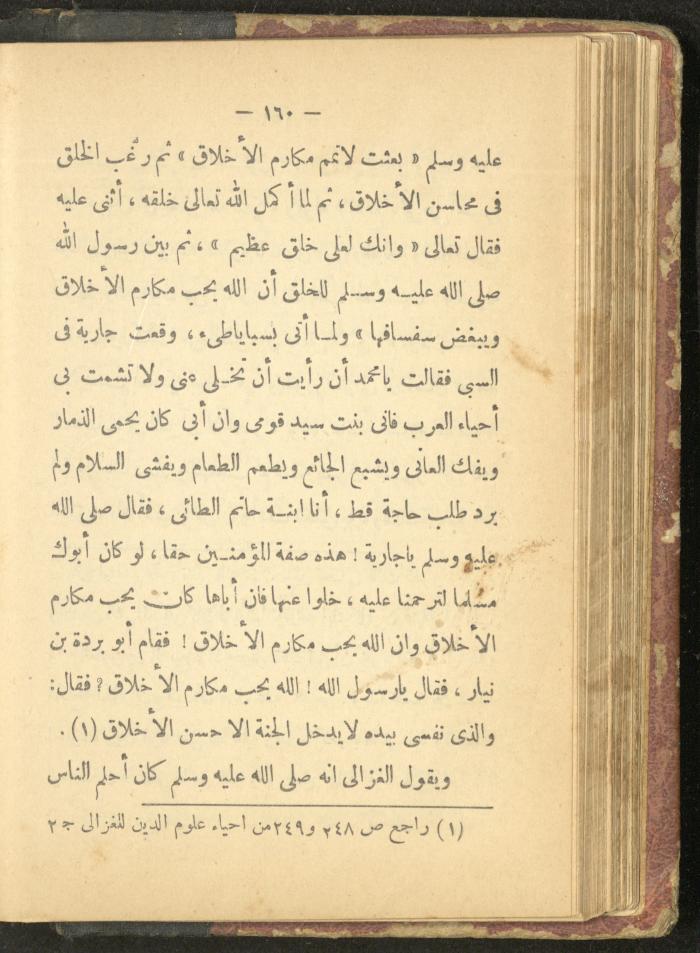 — ١٦٠ —
عليه وسلم « بعثت لاتمم مكارم الأخلاق » ثم رغّب الخلق
فى محاسن الأخلاق ، ثم لما أكمل الله تعالى خلقه ، أثنى عليه
فقال تعالى « وانك لعلى خلق عظيم » ، ثم بين رسول الله
صلى الله عليه وسلم للخلق أن الله يحب مكارم الأخلاق
ويبغض سفسافها » ولما أتى بسباياطيء ، وقعت جارية فى
السبى فقالت يامحمد أن رأيت أن تخلى عنى ولا تشمت بى
أحياء العرب فانى بنت سيد قومى وان أبى كان يحمى الذمار
ويفك العانى ويشبع الجائع ويطعم الطعام ويفشى السلام ولم
يرد طلب حاجة قط ، أنا ابنة حاتم الطائى ، فقال صلى الله
عليه وسلم ياجارية ! هذه صفة المؤمنين حقا ، لو كان أبوك
مسلما لترحمنا عليه ، خلوا عنها فان أباها كان يحب مكارم
الأخلاق وان الله يحب مكارم الأخلاق ! فقام أبو بردة بن
نيار ، فقال يارسول الله ! الله يحب مكارم الأخلاق ؟ فقال :
والذى نفسى بيده لايدخل الجنة الا حسن الأخلاق (١) .
ويقول الغزالى انه صلى الله عليه وسلم كان أحلم الناس
(١) راجع ص ٢٤٨ و٢٤٩ من احياء علوم الدين للغزالى ج ٢